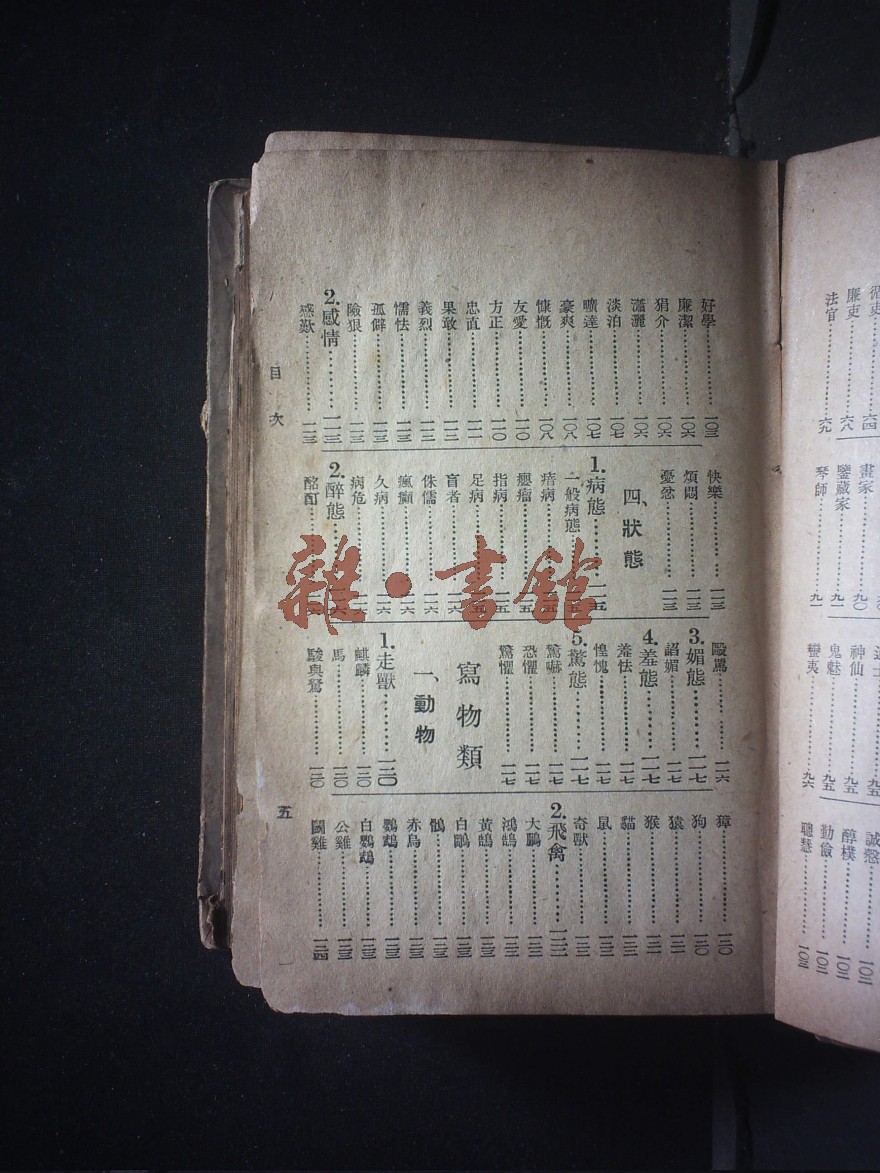 好學⋯⋯一〇三
廉潔⋯⋯一〇六
狷介⋯⋯一〇六
瀟灑⋯⋯一〇六
淡泊⋯⋯一〇七
曠達⋯⋯一〇七
豪爽⋯⋯一〇八
慷慨⋯⋯一〇八
友愛⋯⋯一一〇
方正⋯⋯一一〇
忠直⋯⋯一一一
果敢⋯⋯一一二
義烈⋯⋯一一二
懦怯⋯⋯一一三
孤僻⋯⋯一一三
險狠⋯⋯一一三
2.感情⋯⋯一一三
感歎⋯⋯一一三
快樂⋯⋯一一三
煩悶⋯⋯一一三
憂忿⋯⋯一一三
四、狀態
1.病態⋯⋯一一五
一般病態
瘖病
癭瘤⋯⋯一一五
指病⋯⋯一一五
足病
盲者⋯⋯一一六
侏儒⋯⋯一一六
瘋癲⋯⋯一一六
久病
病危
2.醉態
酩酊
毆罵⋯⋯一一六
3.媚態⋯⋯一一七
諂媚⋯⋯一一七
4.羞態⋯⋯一一七
羞怯⋯⋯一一七
惶愧⋯⋯一一七
5.驚態⋯⋯一一七
驚嚇⋯⋯一一七
恐懼⋯⋯一一七
驚懼⋯⋯一一七
寫物類
一、動物
1.走獸⋯⋯一二〇
麒麟⋯⋯一二〇
馬⋯⋯一二〇
駿與駑⋯⋯一二〇
獐⋯⋯一二〇
狗⋯⋯一二〇
猿⋯⋯一二一
猴⋯⋯一二一
貓⋯⋯一二二
鼠⋯⋯一二二
奇獸⋯⋯一二二
2.飛禽⋯⋯一二二
大鵬⋯⋯一二三
鴻鵠⋯⋯一二三
黃鵠⋯⋯一二三
白鷳⋯⋯一二三
鶻⋯⋯一二三
赤烏⋯⋯一二三
鸚鵡⋯⋯一二三
白鸚鵡⋯⋯一二三
公雞⋯⋯一二三
鬭雞⋯⋯一二四
目次
五
循吏⋯⋯六四
廉吏⋯⋯六八
法官⋯⋯六九
畫家⋯⋯九〇
鑒藏家⋯⋯九一
琴師⋯⋯九一
道士⋯⋯九五
神仙⋯⋯九五
鬼魅⋯⋯九五
蠻夷⋯⋯九六
誠愨⋯⋯一〇二
醇樸⋯⋯一〇二
勤儉⋯⋯一〇二
聰慧⋯⋯一〇三
雜·書館